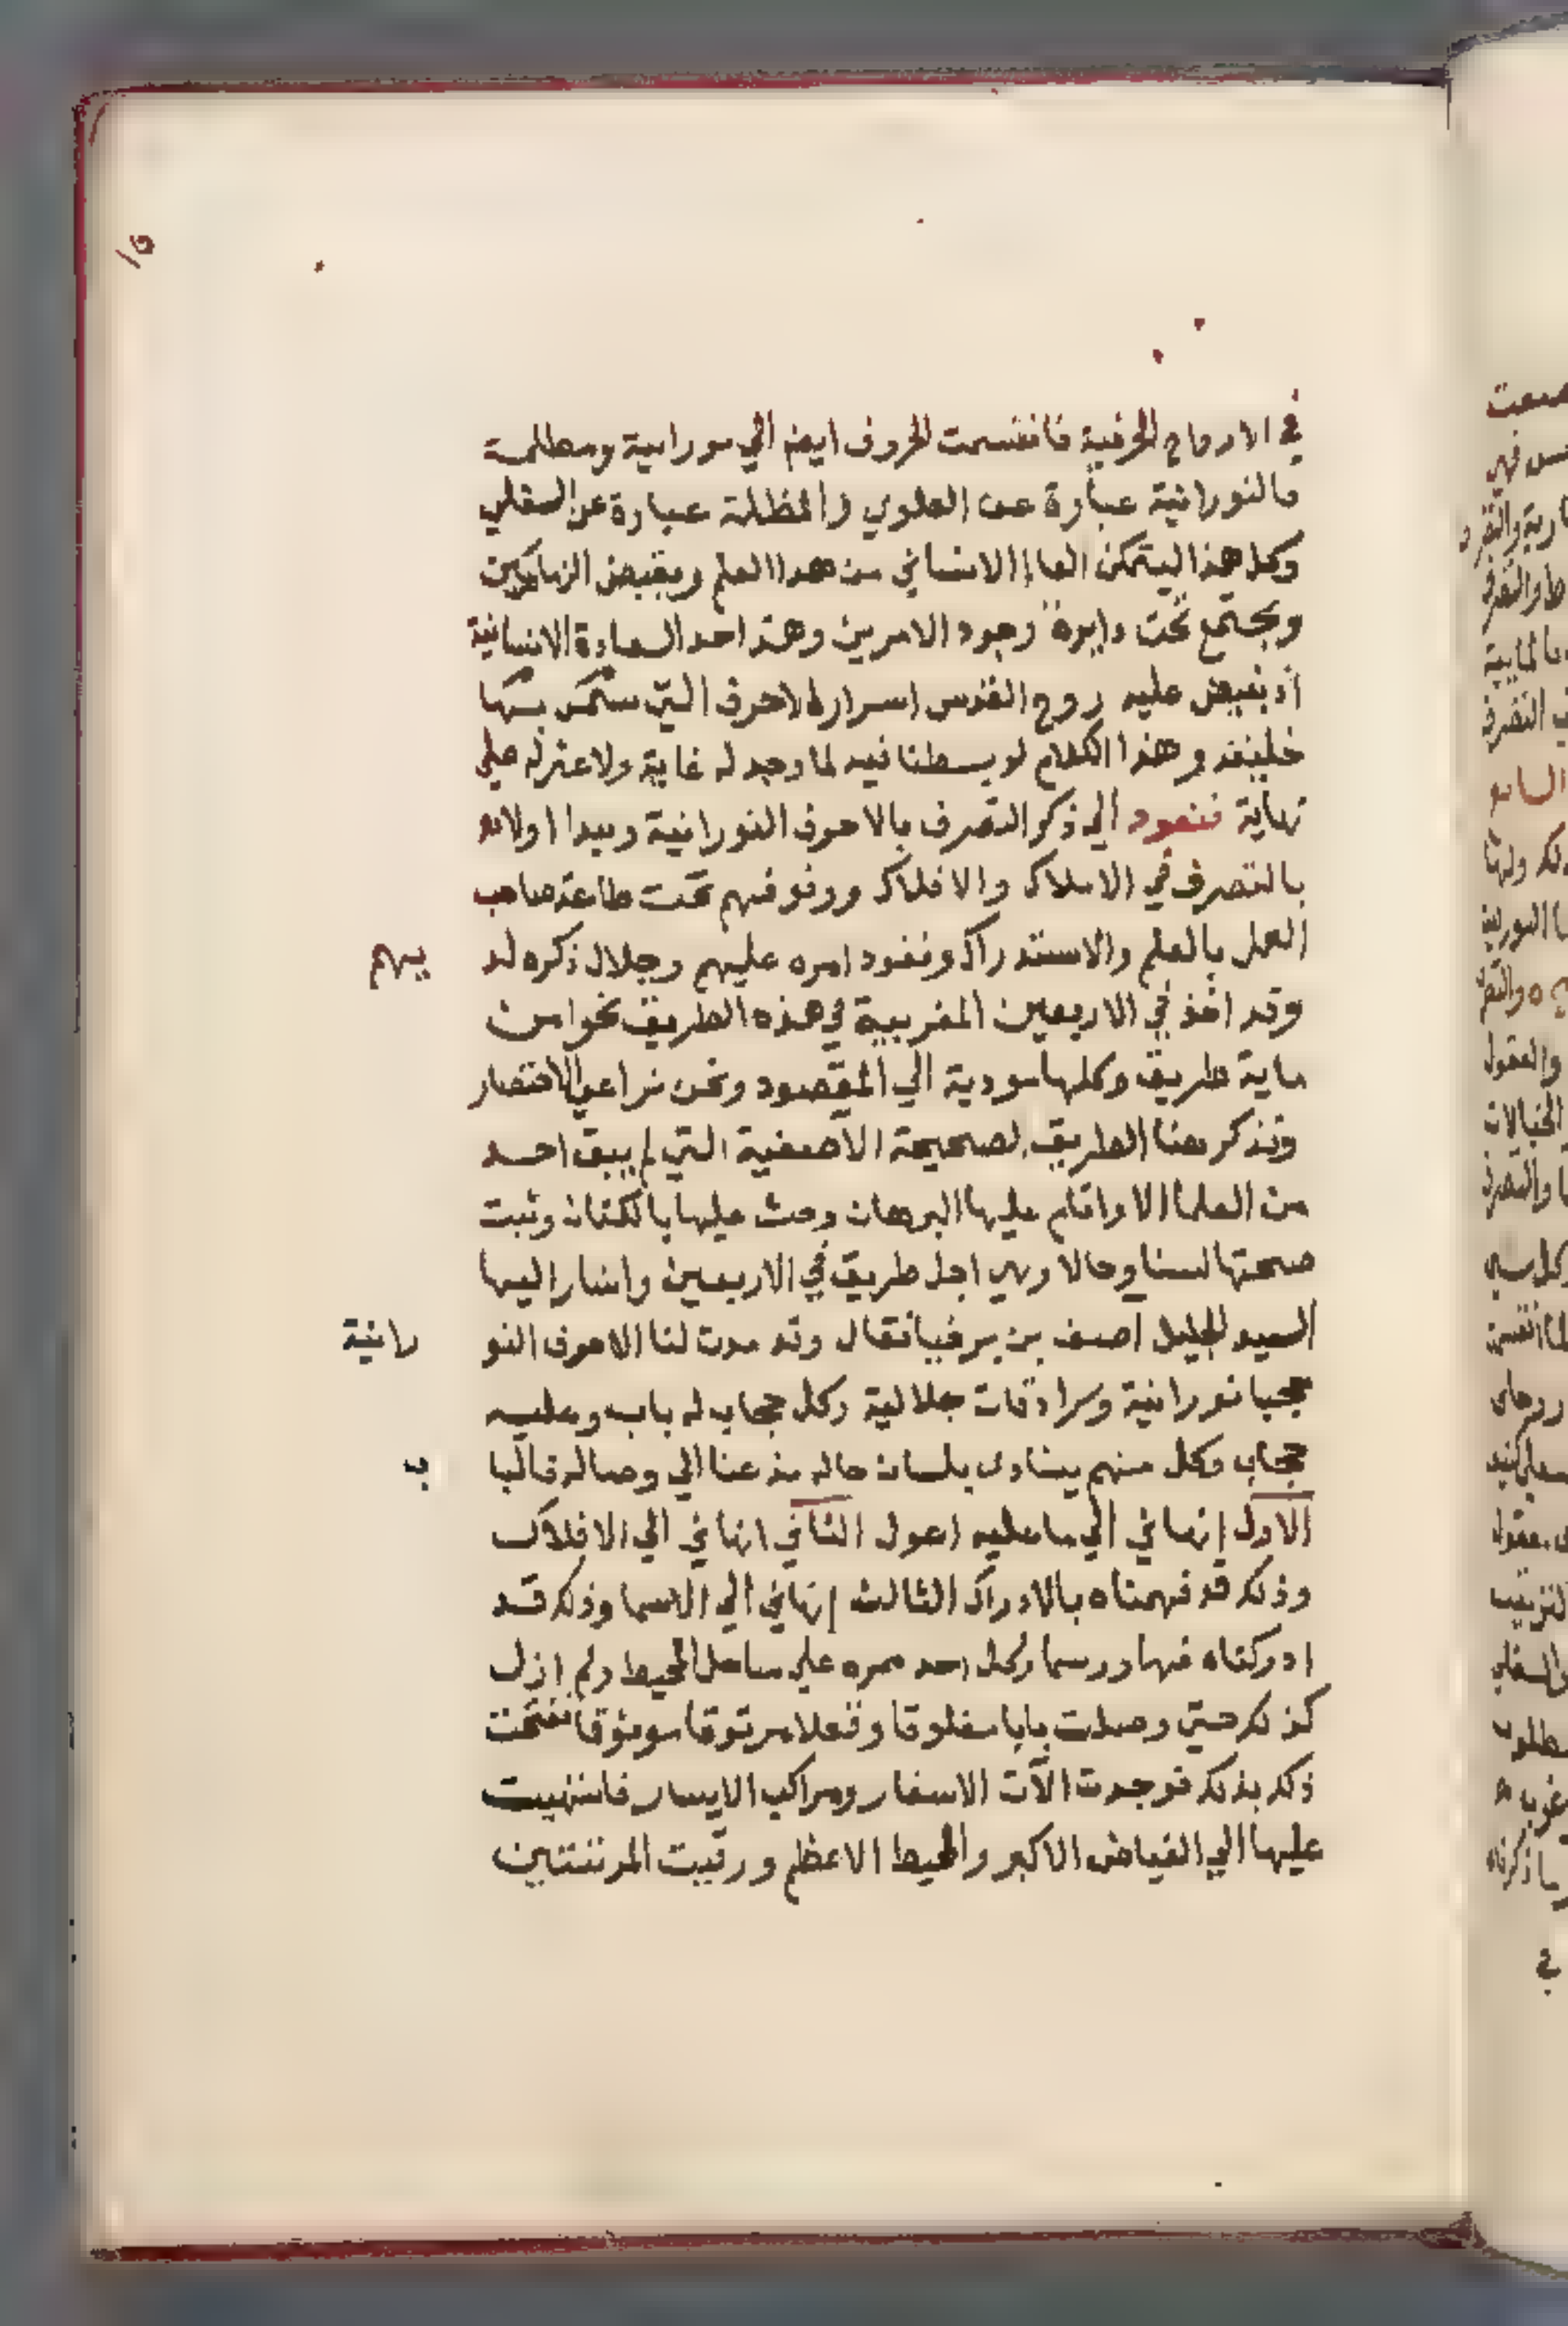 ١٥
في الارواح الحرفية فانقسمت الحروف ايضا الي نورانية ومظلمة
فالنورانية عبارة عن العلوي والمظلمة عبارة عن السفلي
وكل هذا ليتمكن العالم الانساني من هذا العلم ويقبض الزمامين
ويجتمع تحت دايرة وجود الامرين وهذا احد السعادة الانسانية
اذ يفيض عليه روح القدس اسرار الاحرف التي
خليفة وهذا الكلام لو بسطنا فيه لما وجد له غاية ولا عثر له علي
نهاية فنعود الي ذكر التصرف بالاحرف النورانية ويبدا اولا
بالتصرف في الاملاك والافلاك ووقوفهم تحت طاعة صاحب
العمل بالعلم والاستدراك ونفوذ امره عليهم وجلال ذكره لد يهم
وقد اخذ في الاربعين المغربية في هذه الطريق نحوا من
ماية طريق وكلها مودية الي المقصود ونحن نراعي الاختصار
ونذكر هنا الطريق الصحيحة الآصفية التي لم يبق احد
من العلما الا واقام عليها البرهان وحث عليها بالكتمان وثبت
صحتها لسنا وحالا وهي اجل طريق في الاربعين واشار اليها
السيد الجليل آصف بن برخيا فقال وقد مدت لنا الاحرف النو رانية
حجبا نورانية وسرادقات جلالية وكل حجاب له باب وعليه
حجاب وكل منهم ينادي بلسان حاله مذعنا الي وصاله قالبا ب
الاول انهاني الي ما عليه اعول الثاني انهاني الي الافلاك
وذلك قد فهمناه بالادراك الثالث انهاني الي الاسما وذلك قد
ادركناه فهما ورسما وكل احد ممره علي ساحل المحيط ولم ازل
كذلك حتي وصلت بابا مغلوقا وقفلا مرتوقا موثوقا ففتحت
ذلك بذلك فوجدت الآت الاسفار ومراكب الايسار فانتهيت
عليها الي الفياض الاكبر والمحيط الاعظم ورقيت المرتبتين